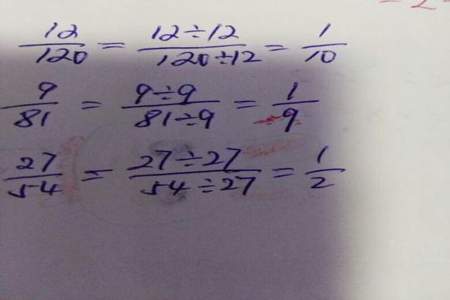 12/120 = 12÷12/120÷12 = 1/10
9/81 = 9÷9/81÷9 = 1/9
27/54 = 27÷27/54÷27 = 1/2